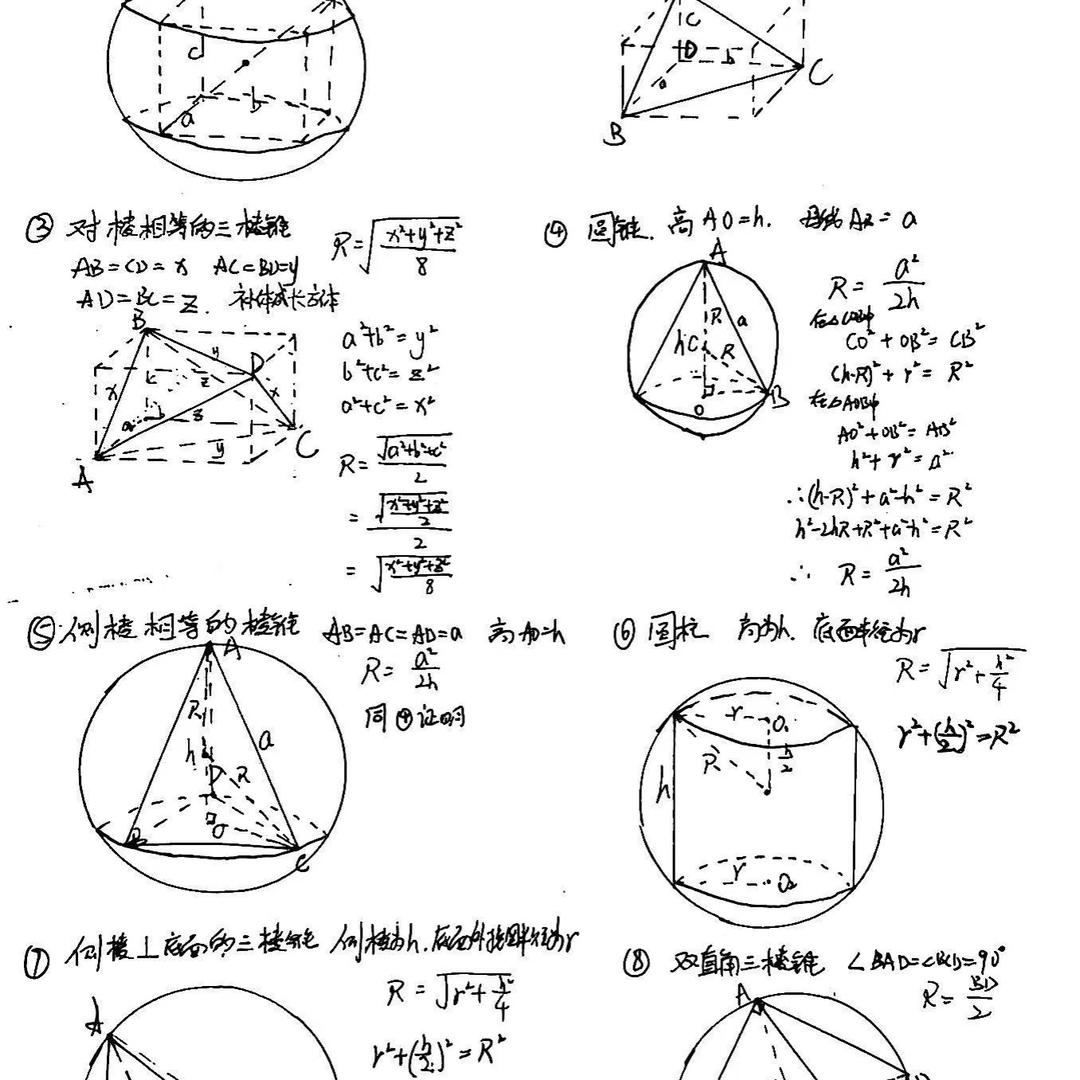 c
b
a
C
D
b
a
C
B
③ 对棱相等的三棱锥
AB=CD=x AC=BD=y
AD=BC=z. 补体成长方体
R=√(x²+y²+z²/8)
B
y
D
z
x
x
c
b
a
z
y
C
A
a²+b²=y²
b²+c²=z²
a²+c²=x²
R=√(a²+b²+c²)/2
=√(x²+y²+z²/2)/2
=√(x²+y²+z²/8)
④ 圆锥. 高AO=h. 母线AB=a
A
R
a
h
C
R
O
B
R=a²/2h
在△COB中
CO²+OB²=CB²
(h-R)²+r²=R²
在△AOB中
AO²+OB²=AB²
h²+r²=a²
∴(h-R)²+a²-h²=R²
h²-2hR+R²+a²-h²=R²
∴ R=a²/2h
⑤ 侧棱相等的棱锥 AB=AC=AD=a 高AO=h
R=a²/2h
同④证明
A
R
h
a
D
R
B
O
C
⑥ 圆柱 高为h. 底面半径为r
R=√(r²+h²/4)
r²+(h/2)²=R²
r
O₁
R
h/2
h
r
O₂
⑦ 侧棱⊥底面的三棱锥 侧棱为h.底面外接圆半径为r
R=√(r²+h²/4)
r²+(h/2)²=R²
A
⑧ 双直角三棱锥 ∠BAD=∠BCD=90°
R=BD/2
A